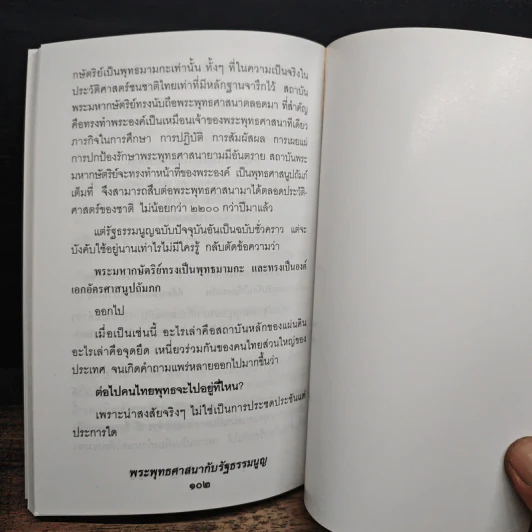 กษัตริย์เป็นพุทธมามกะเท่านั้น ทั้งๆ ที่ในความเป็นจริงใน
ประวัติศาสตร์ชนชาติไทยเท่าที่มีหลักฐานจารึกไว้ สถาบัน
พระมหากษัตริย์ทรงนับถือพระพุทธศาสนาตลอดมา ที่สำคัญ
คือทรงทำพระองค์เป็นเหมือนเจ้าของพระพุทธศาสนาทีเดียว
ภารกิจในการศึกษา การปฏิบัติ การสัมผัสผล การเผยแผ่
การปกป้องรักษาพระพุทธศาสนายามมีอันตราย สถาบันพระ
มหากษัตริย์จะทรงทำหน้าที่ของพระองค์ เป็นพุทธศาสนูปถัมภ์
เต็มที่ จึงสามารถสืบต่อพระพุทธศาสนามาได้ตลอดประวัติ-
ศาสตร์ของชาติ ไม่น้อยกว่า ๒๒๐๐ กว่าปีมาแล้ว
แต่รัฐธรรมนูญฉบับปัจจุบันอันเป็นฉบับชั่วคราว แต่จะ
บังคับใช้อยู่นานเท่าไรไม่มีใครรู้ กลับตัดข้อความว่า
พระมหากษัตริย์ทรงเป็นพุทธมามกะ และทรงเป็นองค์
เอกอัครศาสนูปถัมภก
ออกไป
เมื่อเป็นเช่นนี้ อะไรเล่าคือสถาบันหลักของแผ่นดิน
อะไรเล่าคือจุดยึด เหนี่ยวร่วมกันของคนไทยส่วนใหญ่ของ
ประเทศ จนเกิดคำถามแพร่หลายออกไปมากขึ้นว่า
ต่อไปคนไทยพุทธจะไปอยู่ที่ไหน?
เพราะน่าสงสัยจริงๆ ไม่ใช่เป็นการประชดประชันแต่
ประการใด
พระพุทธศาสนากับรัฐธรรมนูญ
๑๐๒